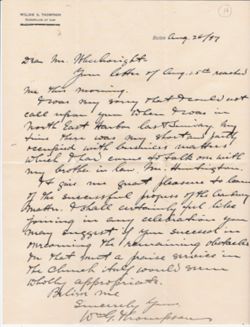 WILLIAM G. THOMPSON
COUNSELLOR AT LAW
Boston Aug. 26/27
Dear Mr. Wheelwright:
Your letter of Aug. 25th reached
me this morning.
I was very sorry that I could not
call upon you when I was in
North East Harbor last Sunday. My
time there was very short and partly
occupied with business matters
which I had come to talk over with
my brother in law, Mr. Huntington.
It gives me great pleasure to learn
of the successful progress of the
matter. I shall certainly feel like
joining in any celebration you
may suggest if you succeed in
overcoming the remaining obstacles
On that most a praise service in
the church itself would seem
wholly appropriate.
Believe me
Sincerely Yours
Wm G. Thompson